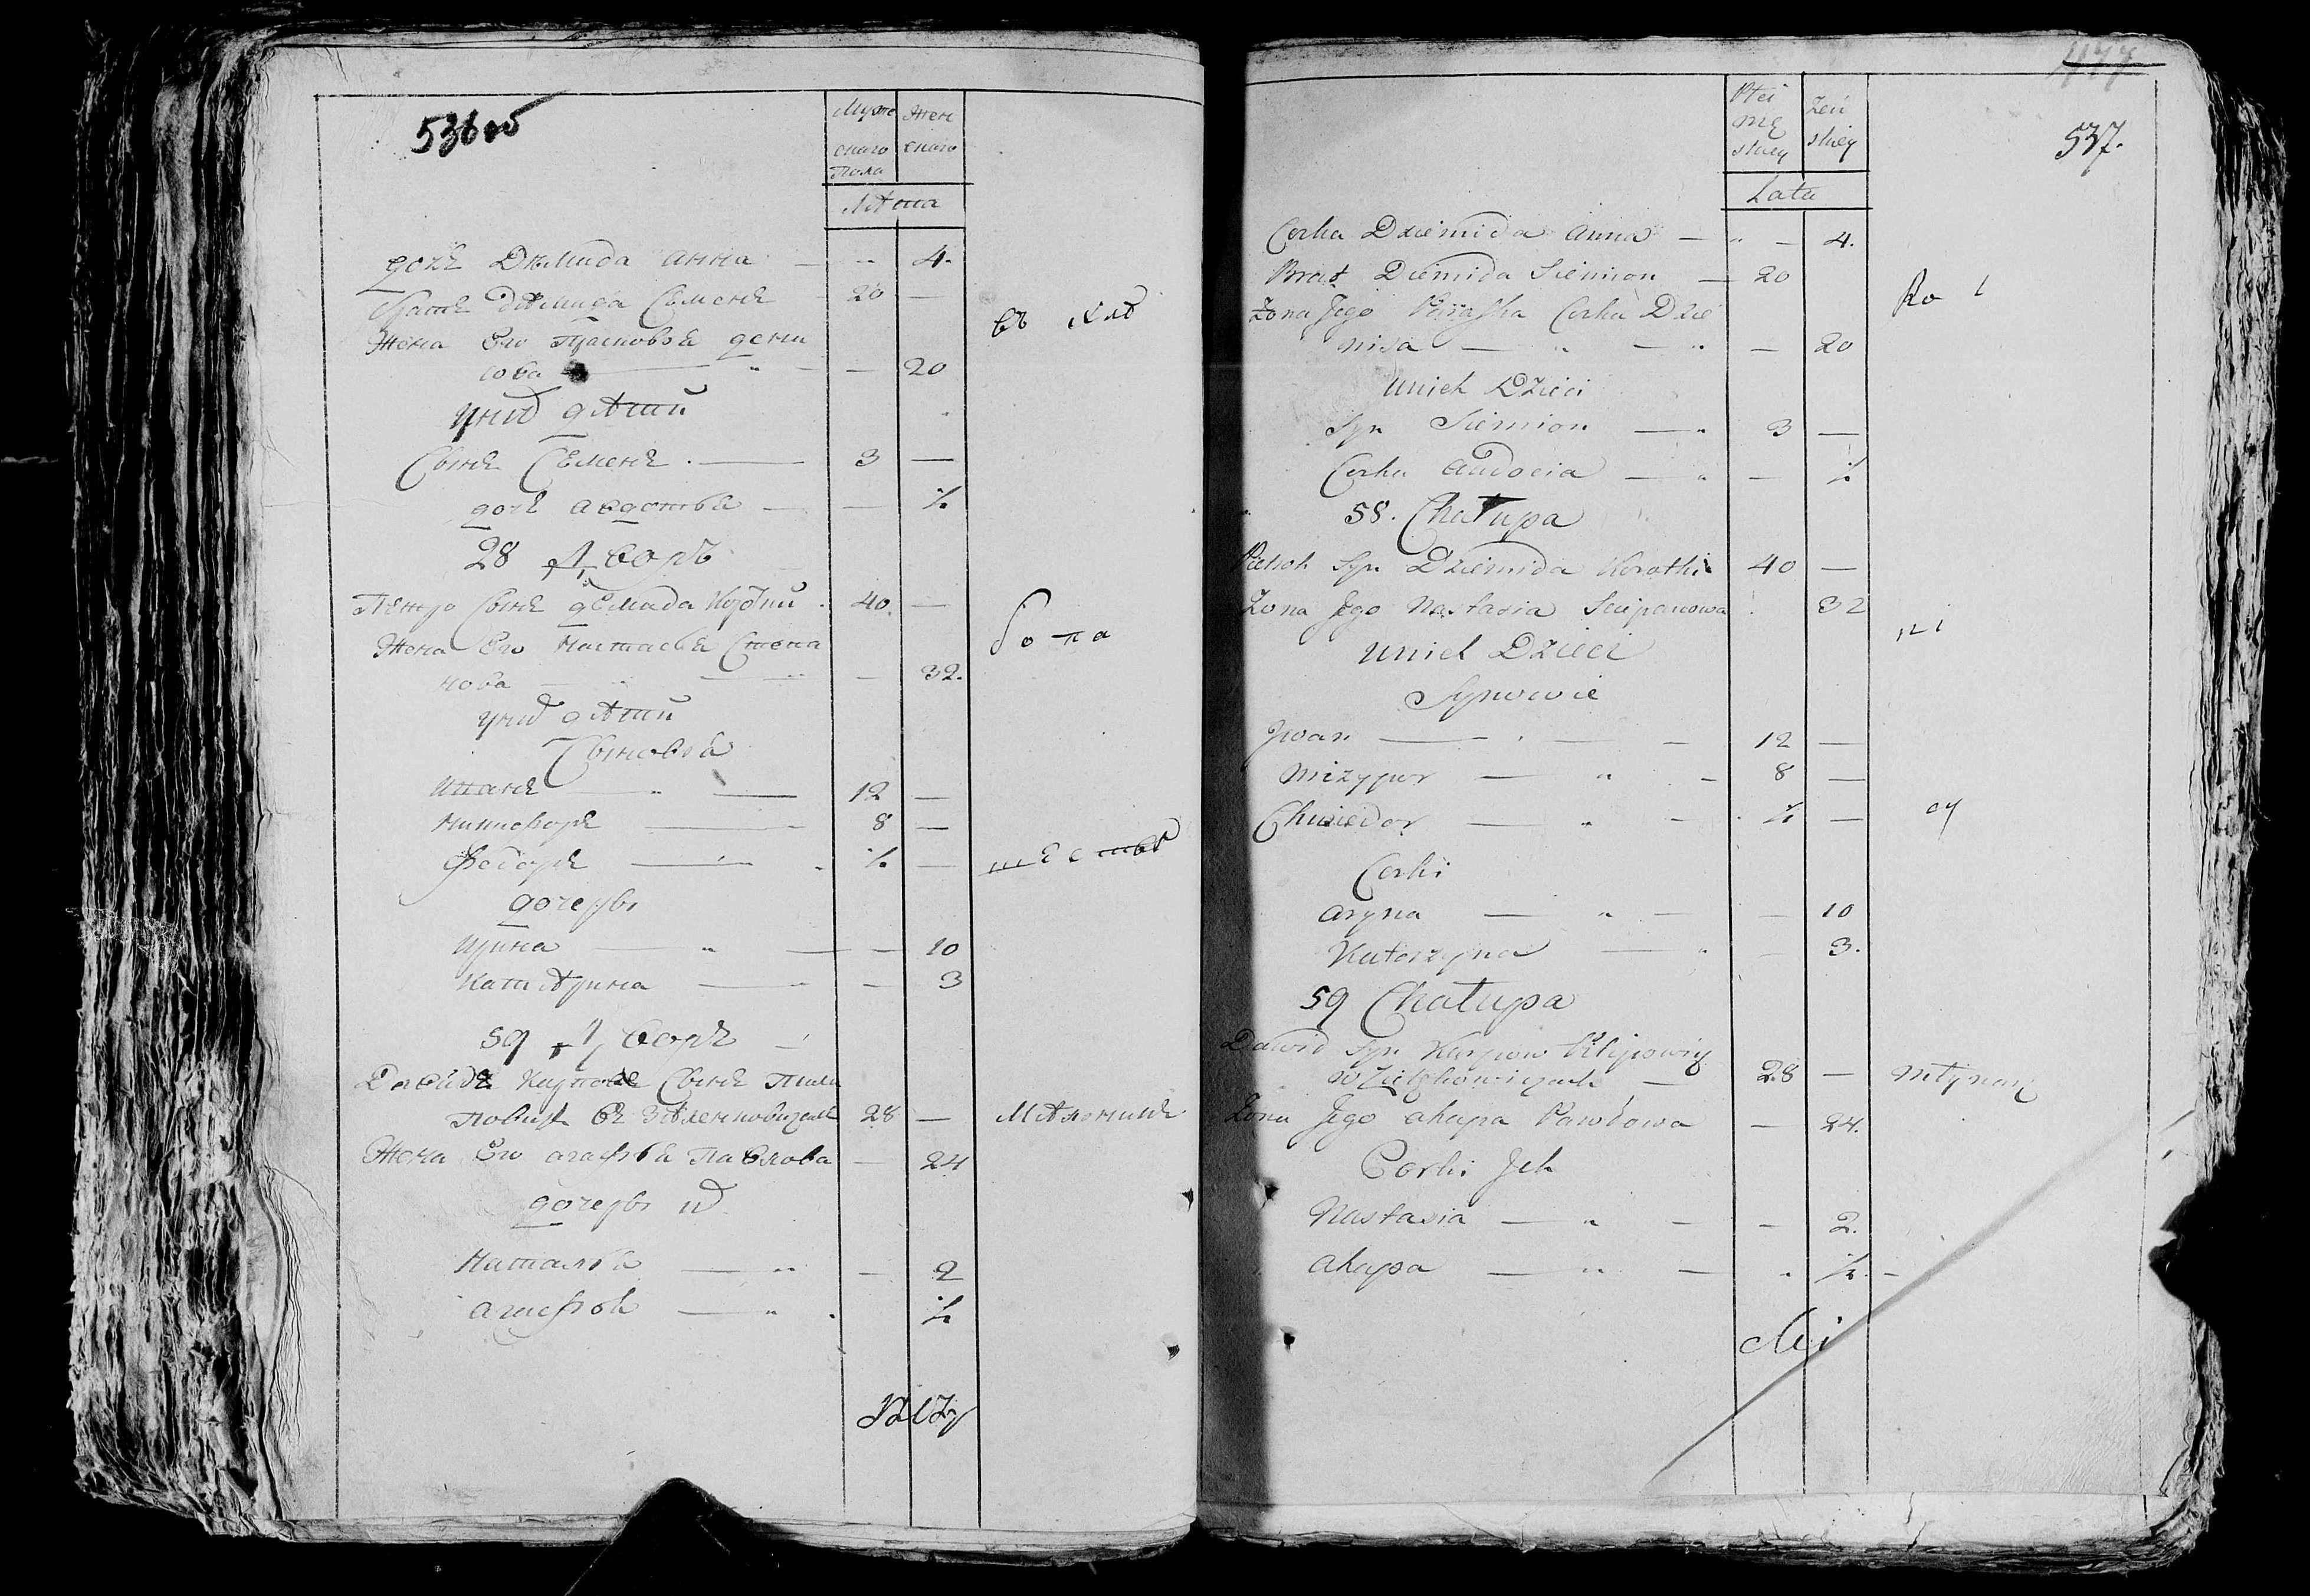 536 об
Мужс Жен
скаго скаго
Пола
Лѣта
дочь Демида Анна — " 4.
Братъ Демида Семенъ - 20 —
въ ихъ
Жена Его Прасковья Дени
сова — " — — 20
У нихъ дѣтѣй
Сынъ Семенъ . — 3 —
дочь Авдотья — — ½
28 Дворъ
Петро Сынъ Демида Короткий . 40. —
Жена Его Настасья Степа
рота
нова — " — " — 32.
У нихъ дѣтѣй
Сыновья
Иванъ — " — 12 —
Никифоръ — 8 —
Федоръ — " . ½ —
шества
дочеры
Ирина — " — — 10
Катѣрина — " — 3
59 Дворъ —
Давидъ Карповъ Сынъ Пили
повичъ Въ Зѣленковичахъ 28 — Мѣлникъ
Жена Его Агафья Павлова — 24
дочеры ихъ
Наталья — " — 2
Агафья — " . ½
477
537.
Płci Żeń
mę skiey
skiey
Lata
Corka Dziemida Anna — " — 4.
Brat Dziemida Siemion — 20
Ro
Żona Jego Paraska Corka Dzie
nisa — " — " — 20
U nich Dzieci
Syn Siemion — " 3 —
Corka Audocia — " — ½
58. Chałupa
Pietroh Syn Dziemida Korotki 40 —
Żona Jego Nastasia Sciepanowa . 32
U nich Dzieci
Synowie
Jwan — . — — 12 —
Nizypor — " — 8 —
Chwiedor — " — . ½ —
Corki
Aryna — " — — 10
Katarzyna — " — 3.
59 Chałupa
Dawid Syn Karpow Pilipowicz
w Zielenkowiczach — 28 — Młynarz
Żona Jego Ahapa Pawłowa — 24.
Corki Jch
Nastasia — " — — 2.
Ahapa — " — " ½. —